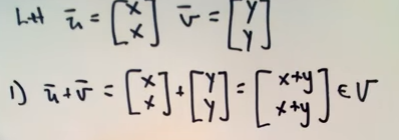 Let ū = [x x] v̄ = [y y]
1) ū+v̄ = [x x] + [y y] = [x+y x+y] ∈ V